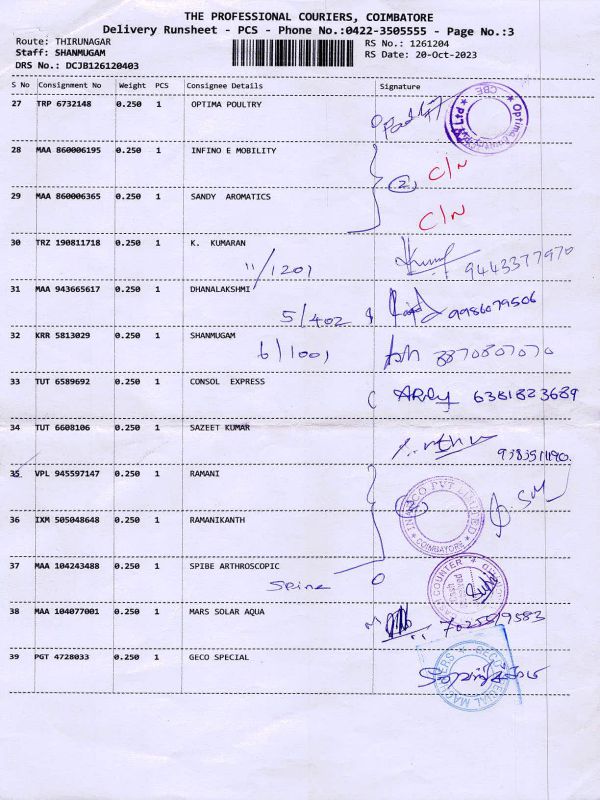 THE PROFESSIONAL COURIERS, COIMBATORE
Delivery Runsheet - PCS - Phone No.:0422-3505555 - Page No.:3
Route: THIRUNAGAR
RS No.: 1261204
Staff: SHANMUGAM
RS Date: 20-Oct-2023
DRS No.: DCJB126120403
S No Consignment No Weight PCS Consignee Details Signature
27 TRP 6732148 0.250 1 OPTIMA POULTRY
28 MAA 860006195 0.250 1 INFINO E MOBILITY
2 C/N
29 MAA 860006365 0.250 1 SANDY AROMATICS
C/N
30 TRZ 190811718 0.250 1 K. KUMARAN
11/1201 9443377970
31 MAA 943665617 0.250 1 DHANALAKSHMI
5/402 9986079506
32 KRR 5813029 0.250 1 SHANMUGAM
6/1001 8870807070
33 TUT 6589692 0.250 1 CONSOL EXPRESS
6381823689
34 TUT 6608106 0.250 1 SAZEET KUMAR
35 VPL 945597147 0.250 1 RAMANI
36 IXM 505048648 0.250 1 RAMANIKANTH
COIMBATORE
37 MAA 104243488 0.250 1 SPIBE ARTHROSCOPIC
Spine
38 MAA 104077001 0.250 1 MARS SOLAR AQUA
7025519583
39 PGT 4728033 0.250 1 GECO SPECIAL